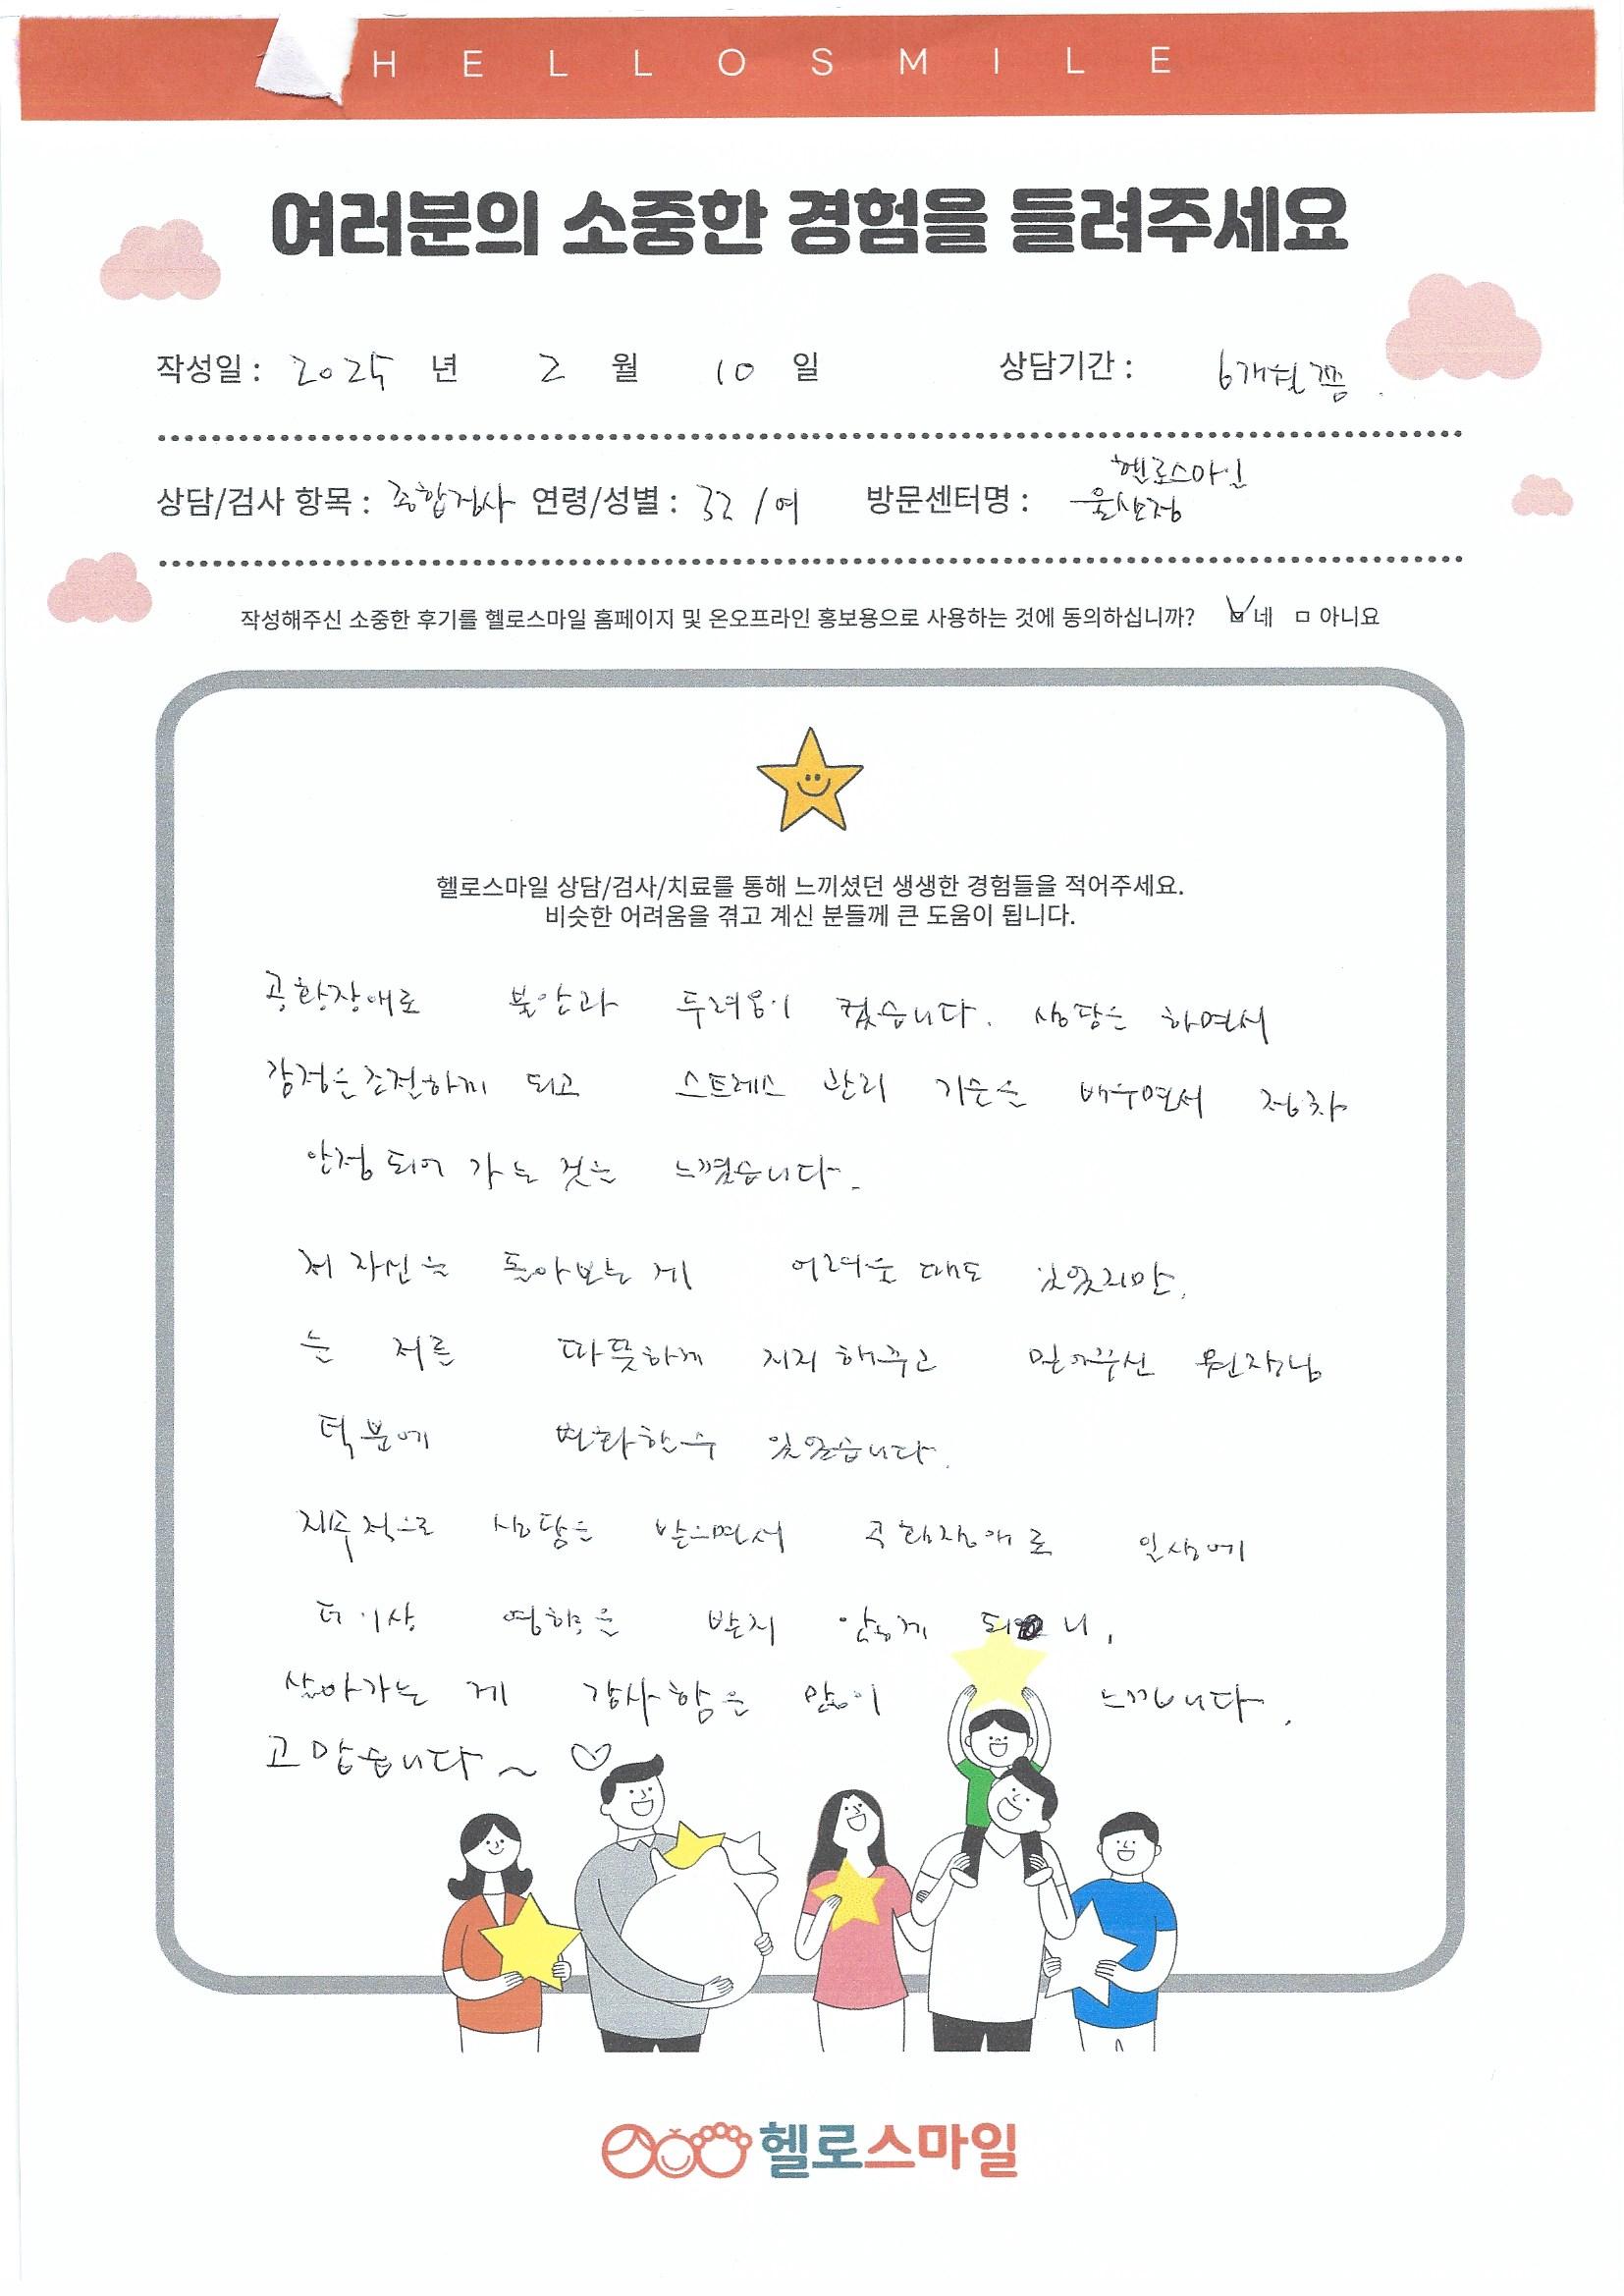 HELLOSMILE
여러분의 소중한 경험을 들려주세요
작성일 : 2025 년 2 월 10 일 상담기간 : 6개월쯤.
상담/검사 항목 : 종합검사 연령/성별 : 32 / 여 방문센터명 : 헬로스마일
울산점
작성해주신 소중한 후기를 헬로스마일 홈페이지 및 온오프라인 홍보용으로 사용하는 것에 동의하십니까? 네 아니요
헬로스마일 상담/검사/치료를 통해 느끼셨던 생생한 경험들을 적어주세요.
비슷한 어려움을 겪고 계신 분들께 큰 도움이 됩니다.
공황장애로 불안과 두려움이 컸습니다. 상담을 하면서
감정을 조절하게 되고 스트레스 관리 기술을 배우면서 점차
안정되어 가는 것을 느꼈습니다.
저 자신을 돌아보는 게 어려울 때도 있었지만,
늘 저를 따뜻하게 지지해주고 믿어주신 원장님
덕분에 변화할 수 있었습니다.
지속적으로 상담을 받으면서 공황장애로 일상에
더 이상 영향을 받지 않게 되니,
살아가는 게 감사함을 많이 느낍니다.
고맙습니다~ ♡
헬로스마일